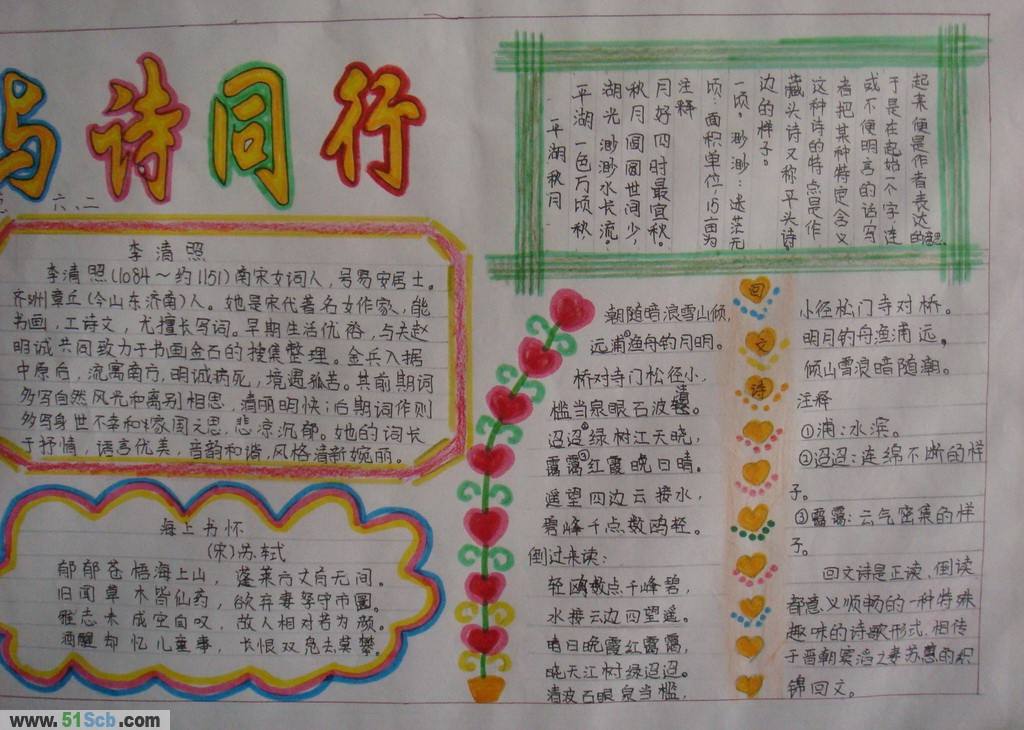 与诗同行
六、二
李清照
李清照(1084～约1151)南宋女词人，号易安居士。
齐州章丘(今山东济南)人。她是宋代著名女作家，能
书画，工诗文，尤擅长写词。早期生活优裕，与夫赵
明诚共同致力于书画金石的搜集整理。金兵入据
中原后，流寓南方，明诚病死，境遇孤苦。其前期词
多写自然风光和离别相思，清丽明快；后期词作则
多写身世不幸和家国之思，悲凉沉郁。她的词长
于抒情，语言优美，音韵和谐，风格清新婉丽。
海上书怀
(宋)苏轼
郁郁苍梧海上山，蓬莱方丈有无间。
旧闻草木皆仙药，欲弃妻孥守市圜。
雅志未成空自叹，故人相对若为颜。
酒醒却忆儿童事，长恨双凫去莫攀。
平湖秋月
平湖一色万顷秋
湖光渺渺水长流。
秋月圆圆世间少，
月好四时最宜秋。
注释
顷：面积单位，15亩为
一顷。渺渺：迷茫无
边的样子。
藏头诗又称平头诗
这种诗的特点是作
者把某种特定含义
或不便明言的话，写
于是在起始一个字，连
起来便是作者表达的意思。
朝随暗浪雪山倾，
远浦①渔舟钓月明。
桥对寺门松径小，
槛当泉眼石波清。
迢迢②绿树江天晓，
霭霭③红霞晚日晴。
遥望四边云接水，
碧峰千点数鸥轻。
倒过来读：
轻鸥数点千峰碧，
水接云边四望遥。
晴日晚霞红霭霭，
晓天江树绿迢迢。
清波石眼泉当槛，
回
文
诗
小径松门寺对桥。
明月钓舟渔浦远，
倾山雪浪暗随潮。
注释
①浦：水滨。
②迢迢：连绵不断的样
子。
③霭霭：云气密集的样
子。
回文诗是正读、倒读
都意义顺畅的一种特殊
趣味的诗歌形式，相传
于晋朝窦滔之妻苏蕙的织
锦回文。
www.51Scb.com